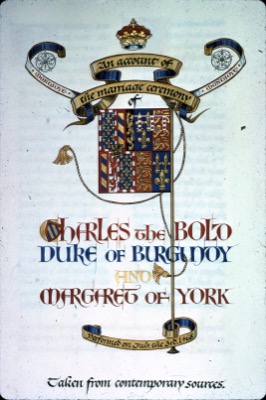 An account of
the marriage ceremony
of
Charles the Bold
Duke of Burgundy
and
Margaret of York
Performed on July the 3rd 1468
Taken from contemporary sources.